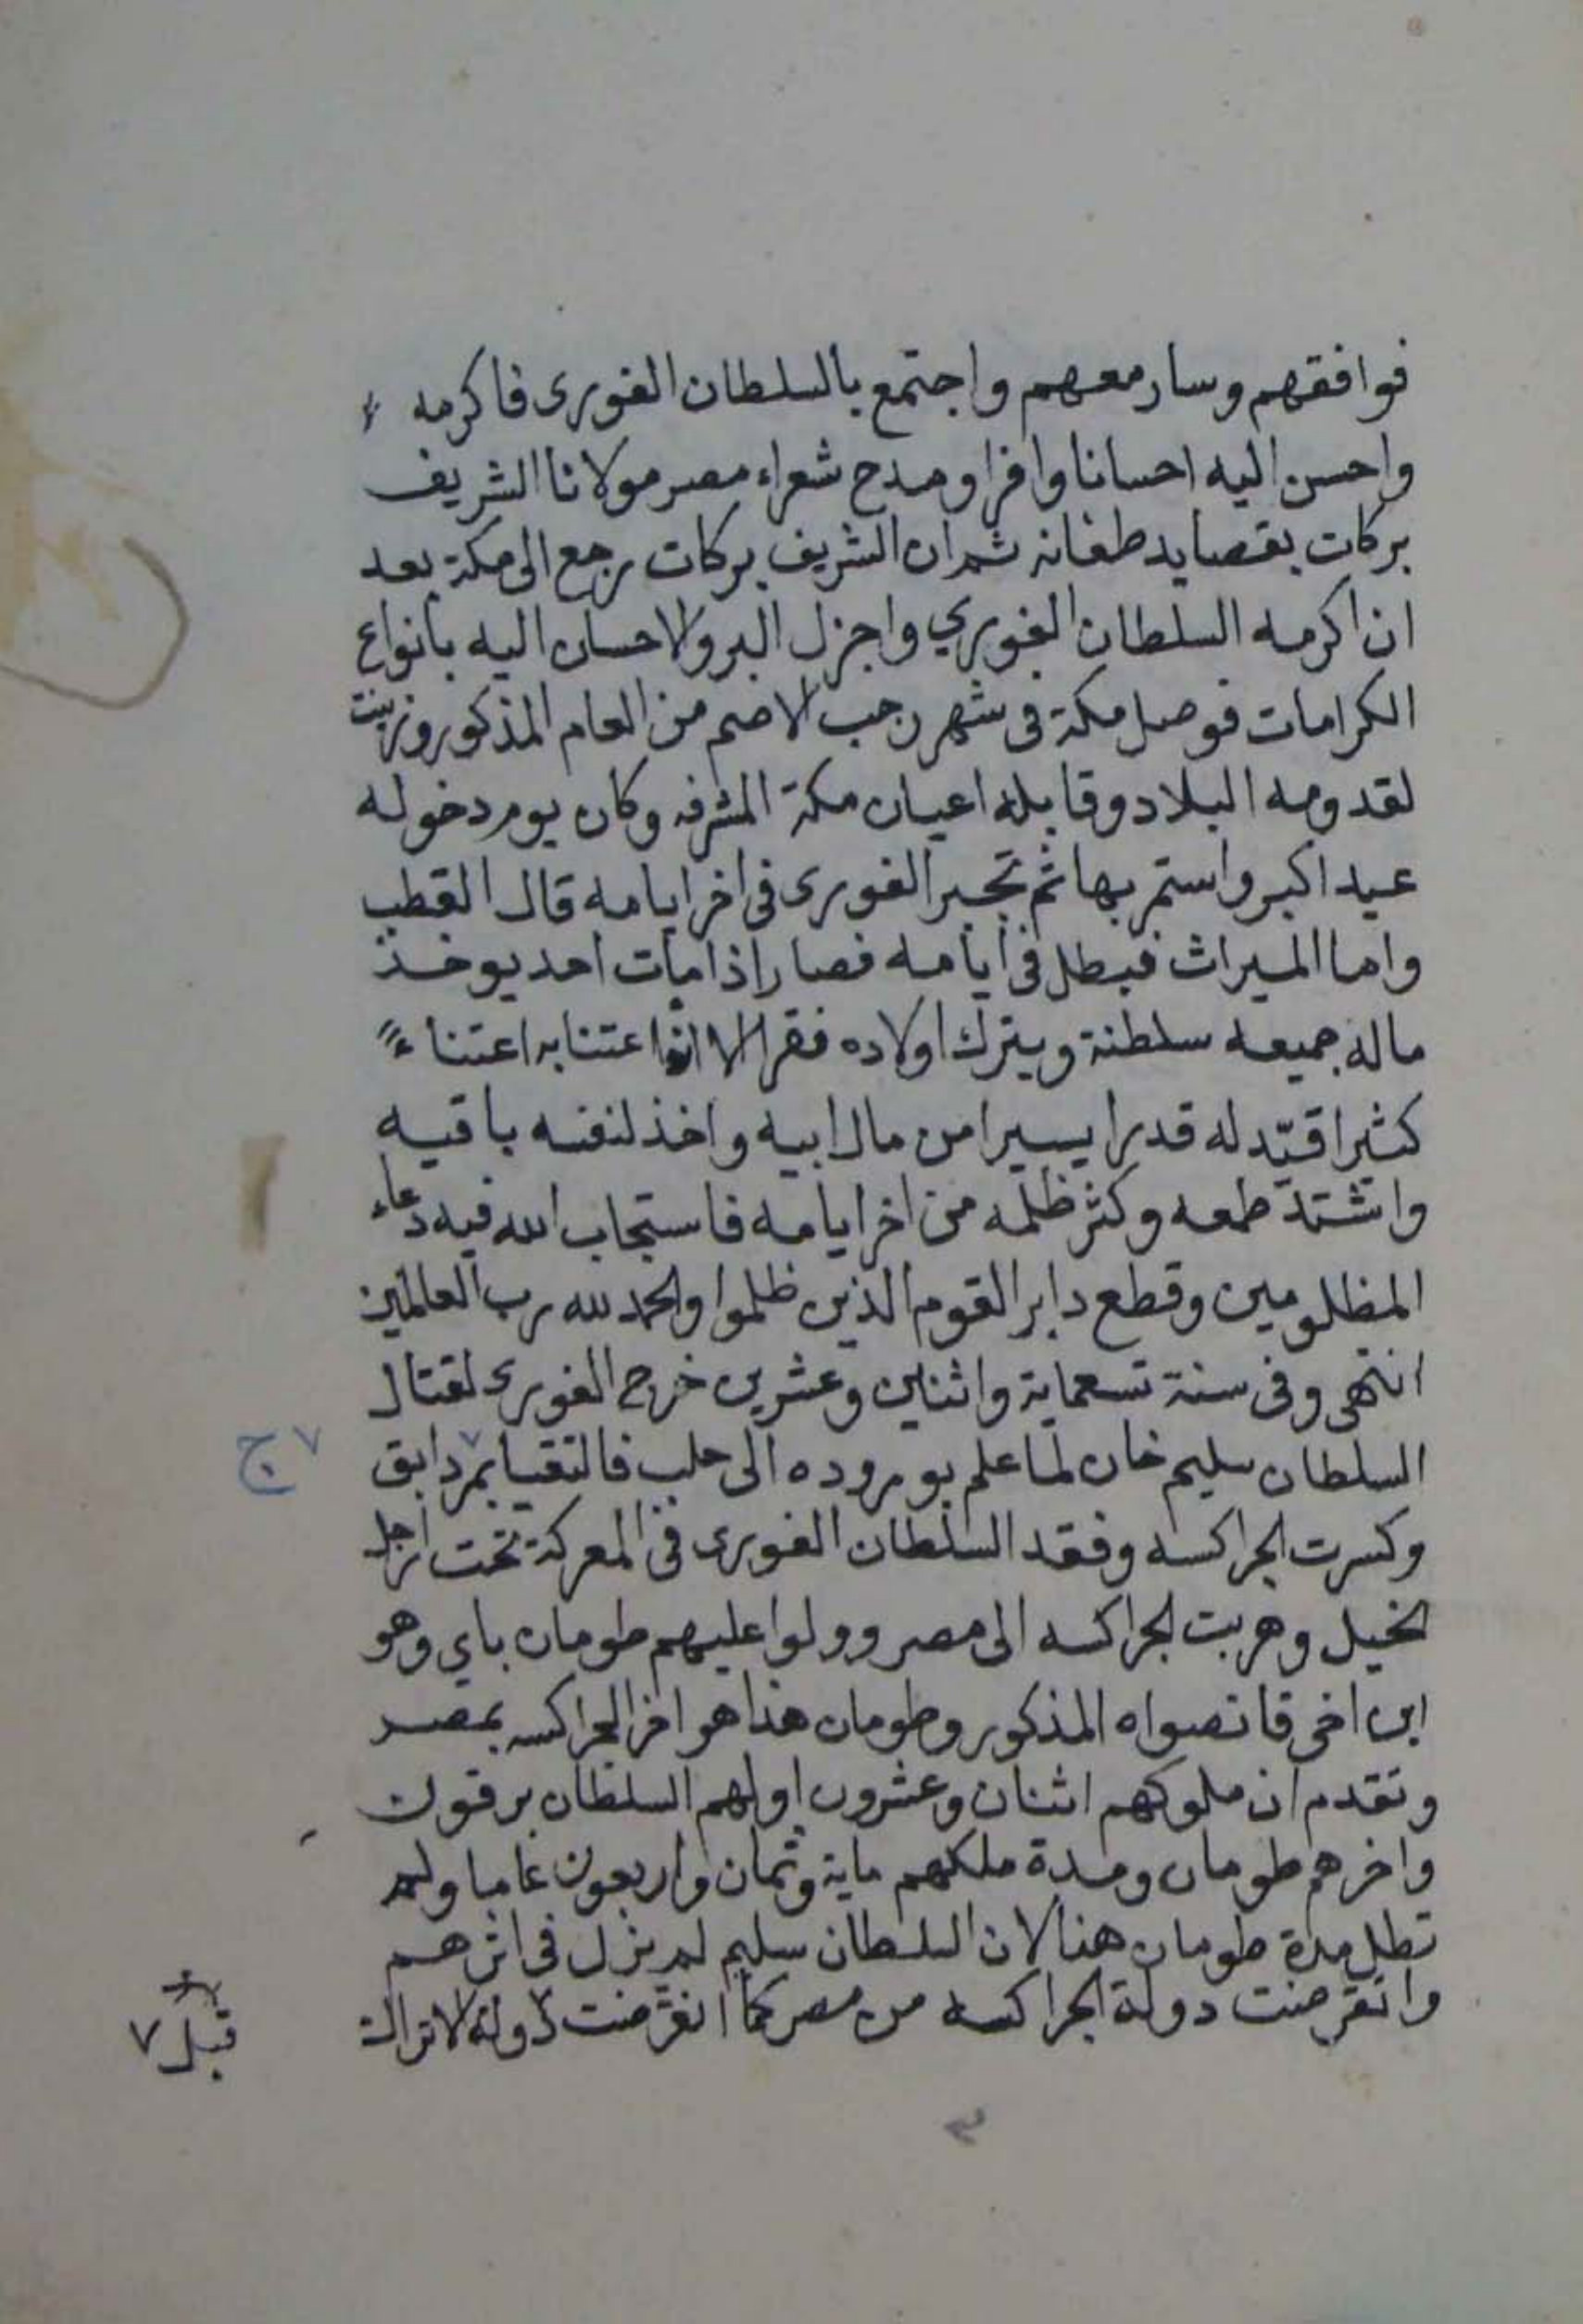 فوافقهم وسار معهم واجتمع بالسلطان الغورى فاكرمه
واحسن اليه احسانا وافرا ومدح شعراء مصر مولانا الشريف
بركات بقصايد طنانه ثم ان الشريف بركات رجع الى مكة بعد
ان اكرمه السلطان الغوري واجزل البر والاحسان اليه بانواع
الكرامات فوصل مكة فى شهر رجب الاصم من العام المذكور وزينت
لقدومه البلاد وقابله اعيان مكة المشرفه وكان يوم دخوله
عيد اكبر واستمر بها ثم تجبر الغورى فى اخر ايامه قال القطب
واما الميراث فبطل فى ايامه فصار اذا مات احد يوخذ
ماله جميعه سلطنة ويترك اولاده فقرا الا اعتنا به اعتناءً
كثيرا قيّد له قدرا يسيرا من مال ابيه واخذ لنفسه باقيه
واشتد طمعه وكثر ظلمه من اخر ايامه فاستجاب الله فيه دعاء
المظلومين وقطع دابر القوم الذين ظلموا والحمد لله رب العالمين
انتهى وفى سنة تسعماية واثنين وعشرين خرج الغورى لقتال
السلطان سليم خان لما علم بوروده الى حلب فالتقيا بمر دابق
٧ ج
وكسرت الجراكسه وفقد السلطان الغورى فى المعركة تحت ارجل
الخيل وهربت الجراكسه الى مصر وولوا عليهم طومان باي وهو
ابن اخى قانصواه المذكور وطومان هذا هو اخر الجراكسه بمصر
وتقدم ان ملوكهم اثنان وعشرون اولهم السلطان برقوق
واخرهم طومان ومدة ملكهم ماية وثمان واربعون عاما ولم
تطل مدة طومان هنا لان السلطان سليم لم يزل فى اثرهم
وانقرضت دولة الجراكسه من مصر كما انقرضت دولة الاتراك
قبل ٧